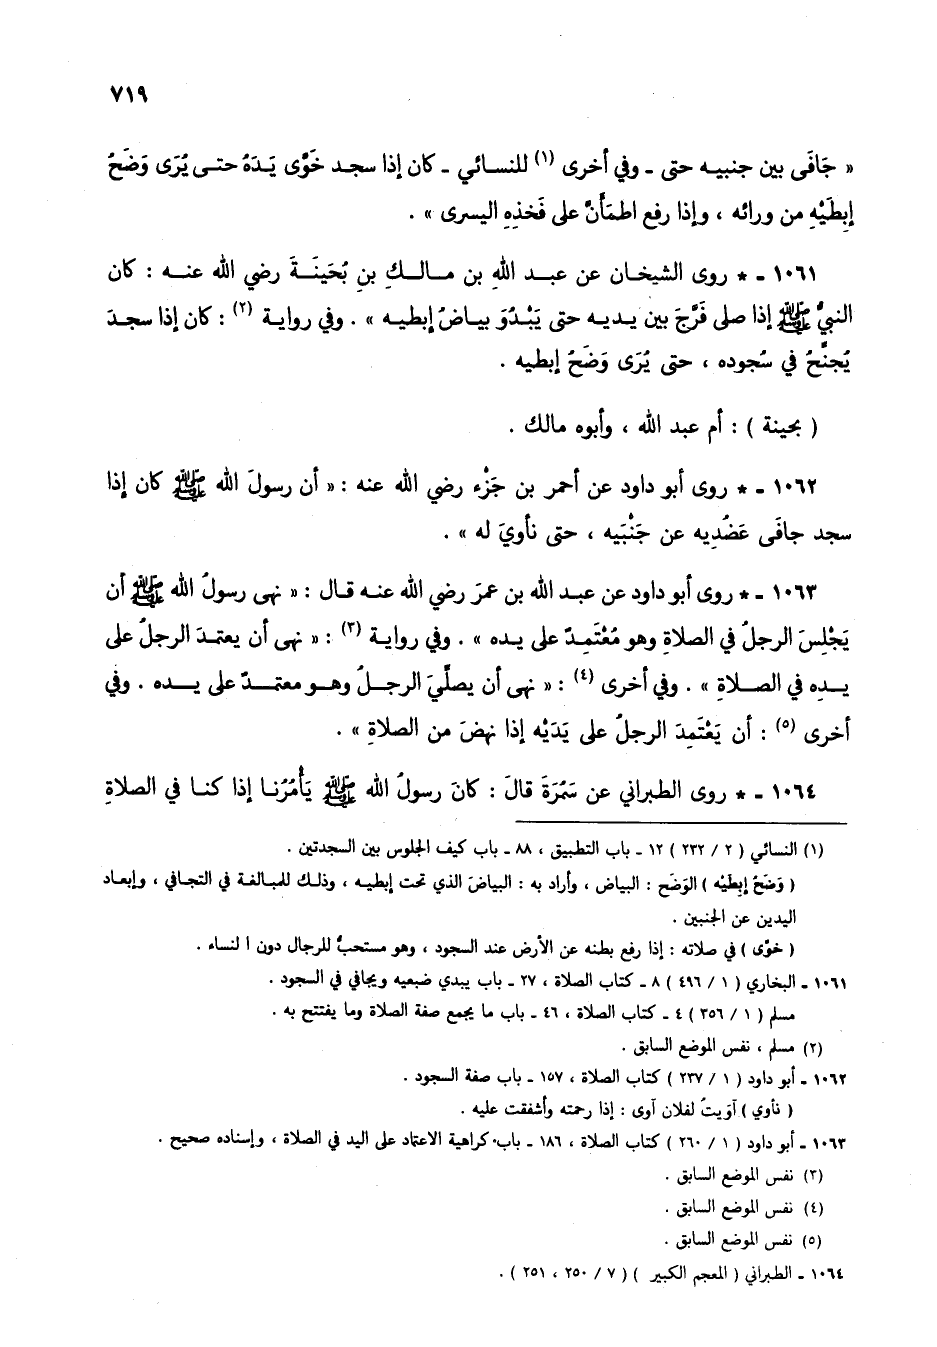 ٧١٩
« جَافَى بين جنبيـه حتى ـ وفي أخرى (١) للنسـائي ـ كان إذا سجـد خَوَّى يَـدَهُ حتـى يُرَى وَضَحُ
إبِطَيْهِ من ورائه ، وإذا رفع اطمَأَنَّ على فَخذِهِ اليسرى » .
١٠٦١ ـ * روى الشيخـان عن عبـد اللهِ بن مـالـكِ بنِ بُحَينَـةَ رضي الله عنـه : كان
النبيُّ ﷺ إذا صلى فَرَّجَ بين يـديـه حتى يَبْدُوَ بيـاضُ إبطيـه » . وفي روايـة (٢) : كان إذا سجـدَ
يُجنِّحُ في سُجوده ، حتى يُرَى وَضَحُ إبطيه .
( بحينة ) : أم عبد الله ، وأبوه مالك .
١٠٦٢ ـ * روى أبو داود عن أحمر بن جَزْء رضي الله عنه : « أن رسولَ الله ﷺ كان إذا
سجد جافَى عَضُدِيه عن جَنْبَيه ، حتى نأويَ له » .
١٠٦٣ ـ * روى أبو داود عن عبـد الله بن عمرَ رضي الله عنـه قـال : « نهى رسولُ الله ﷺ أن
يَجْلِسَ الرجلُ في الصلاةِ وهو مُعْتَمِدٌ على يده » . وفي روايـة (٣) : « نهى أن يعتمـدَ الرجلُ على
يـدِه في الصـلاةِ » . وفي أخرى (٤) : « نهى أن يصلِّيَ الرجـلُ وهـو معتمـدٌ على يـده . وفي
أخرى (٥) : أن يَعْتَمِدَ الرجلُ على يَدَيْه إذا نهضَ من الصلاةِ » .
١٠٦٤ ـ * روى الطبراني عن سَمُرَةَ قالَ : كانَ رسولُ الله ﷺ يَأْمُرُنـا إذا كنـا في الصلاةِ
(١) النسائي ( ٢ / ٢٣٢ ) ١٢ ـ باب التطبيق ، ٨٨ ـ باب كيف الجلوس بين السجدتين .
( وَضَحُ إبطَيْه ) الوَضَح : البياض ، وأراد به : البياضَ الذي تحت إبطيـه ، وذلـك للمبالغـة في التجافي ، وإبعـاد
اليدين عن الجنبين .
( خوَّى ) في صلاته : إذا رفع بطنه عن الأرض عند السجود ، وهو مستحبٌّ للرجال دون ا لنساء .
١٠٦١ ـ البخاري ( ١ / ٤٩٦ ) ٨ ـ كتاب الصلاة ، ٢٧ ـ باب يبدي ضبعيه ويجافي في السجود .
مسلم ( ١ / ٣٥٦ ) ٤ ـ كتاب الصلاة ، ٤٦ ـ باب ما يجمع صفة الصلاة وما يفتتح به .
(٢) مسلم ، نفس الموضع السابق .
١٠٦٢ ـ أبو داود ( ١ / ٢٣٧ ) كتاب الصلاة ، ١٥٧ ـ باب صفة السجود .
( نأوي ) آوَيتُ لفلان آوى : إذا رحمته وأشفقت عليه .
١٠٦٣ ـ أبو داود ( ١ / ٢٦٠ ) كتاب الصلاة ، ١٨٦ ـ باب كراهية الاعتماد على اليد في الصلاة ، وإسناده صحيح .
(٣) نفس الموضع السابق .
(٤) نفس الموضع السابق .
(٥) نفس الموضع السابق .
١٠٦٤ ـ الطبراني ( المعجم الكبير ) ( ٧ / ٢٥٠ ، ٢٥١ ) .